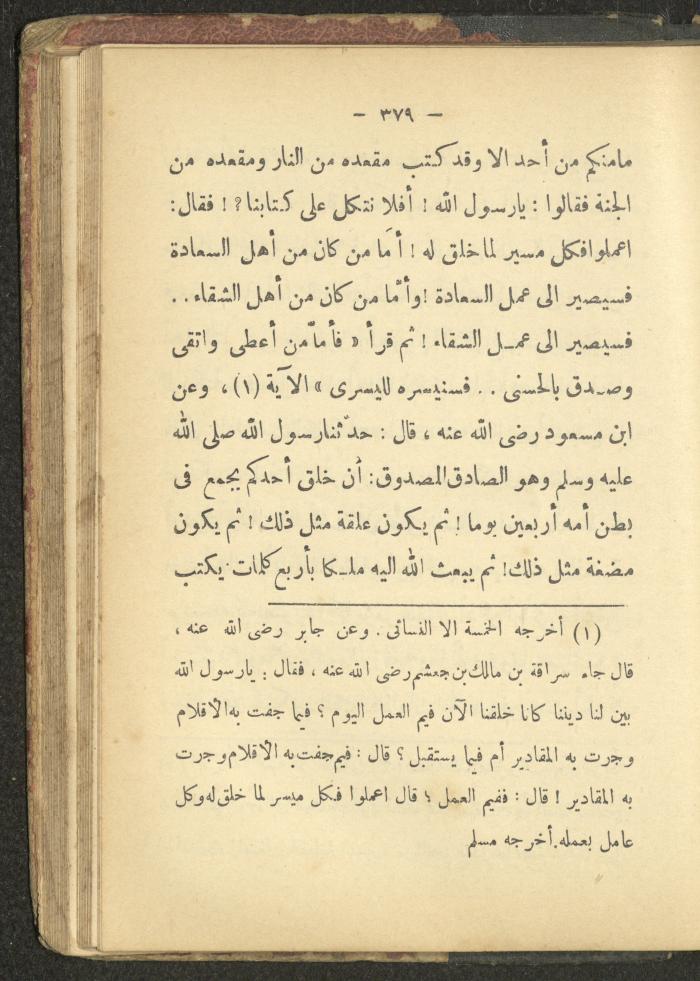 — ٣٧٩ —
مامنكم من أحد الا وقد كتب مقعده من النار ومقعده من
الجنة فقالوا : يارسول الله ! أفلا نتكل على كتابنا ? ! فقال:
اعملوا فكل مسير لما خلق له ! أمّا من كان من أهل السعادة
فسيصير الى عمل السعادة ! وأمّا من كان من أهل الشقاء . .
فسيصير الى عمل الشقاء ! ثم قرأ « فأمّا من أعطى واتقى
وصدق بالحسنى . . فسنيسره لليسرى » الآية (١) ، وعن
ابن مسعود رضى الله عنه ، قال : حدّثنا رسول الله صلى الله
عليه وسلم وهو الصادق المصدوق: أن خلق أحدكم يجمع فى
بطن أمه أربعين يوما ! ثم يكون علقة مثل ذلك ! ثم يكون
مضغة مثل ذلك! ثم يبعث الله اليه ملكا بأربع كلمات يكتب
(١) أخرجه الخمسة الا النسائى . وعن جابر رضى الله عنه ،
قال جاء سراقة بن مالك بن جعشم رضى الله عنه ، فقال : يارسول الله
بين لنا ديننا كانا خلقنا الآن فيم العمل اليوم ؟ فيما جفت به الأقلام
وجرت به المقادير أم فيما يستقبل ؟ قال : فيم جفت به الأقلام وجرت
به المقادير ! قال : ففيم العمل ؟ قال اعملوا فكل ميسر لما خلق له وكل
عامل بعمله . أخرجه مسلم